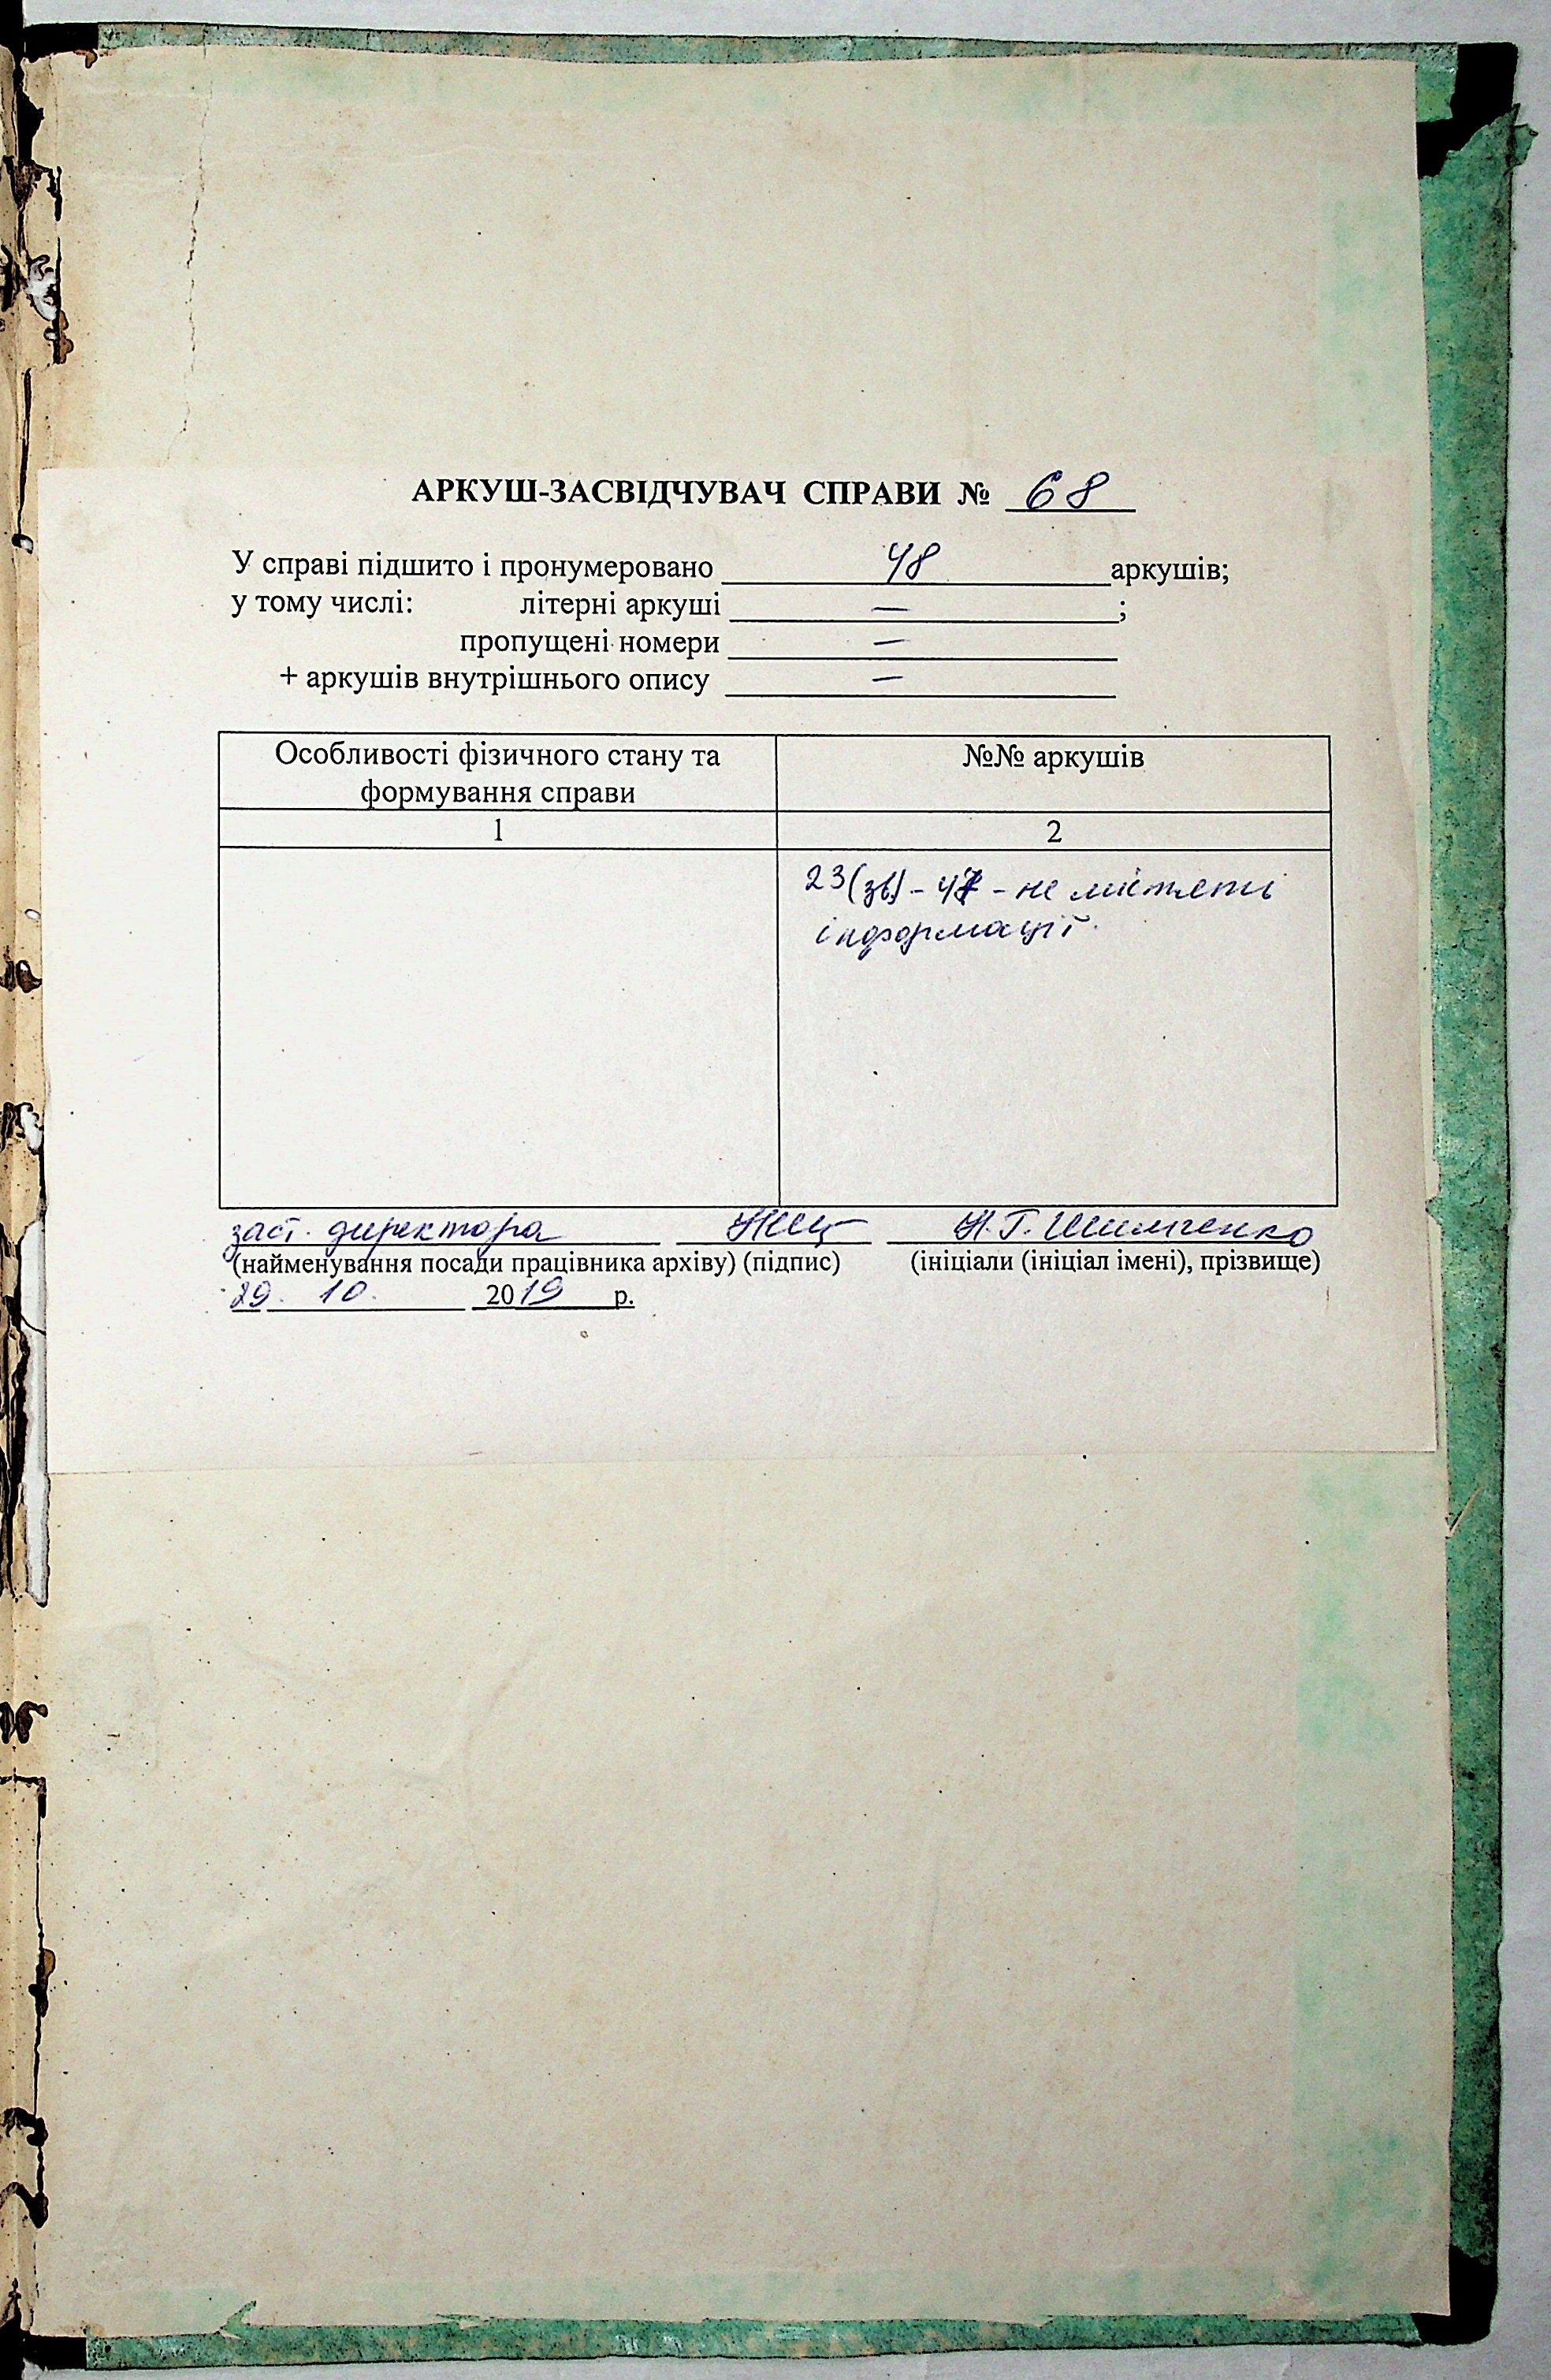 АРКУШ-ЗАСВІДЧУВАЧ СПРАВИ № 68
У справі підшито і пронумеровано 48 аркушів;
у тому числі: літерні аркуші — ;
пропущені номери —
+ аркушів внутрішнього опису —
Особливості фізичного стану та формування справи
№№ аркушів
1 2
23(зв) - 47 - не містять
інформації.
заст. директора Н.Г. Шимченко
(найменування посади працівника архіву) (підпис) (ініціали (ініціал імені), прізвище)
29. 10. 2019 р.